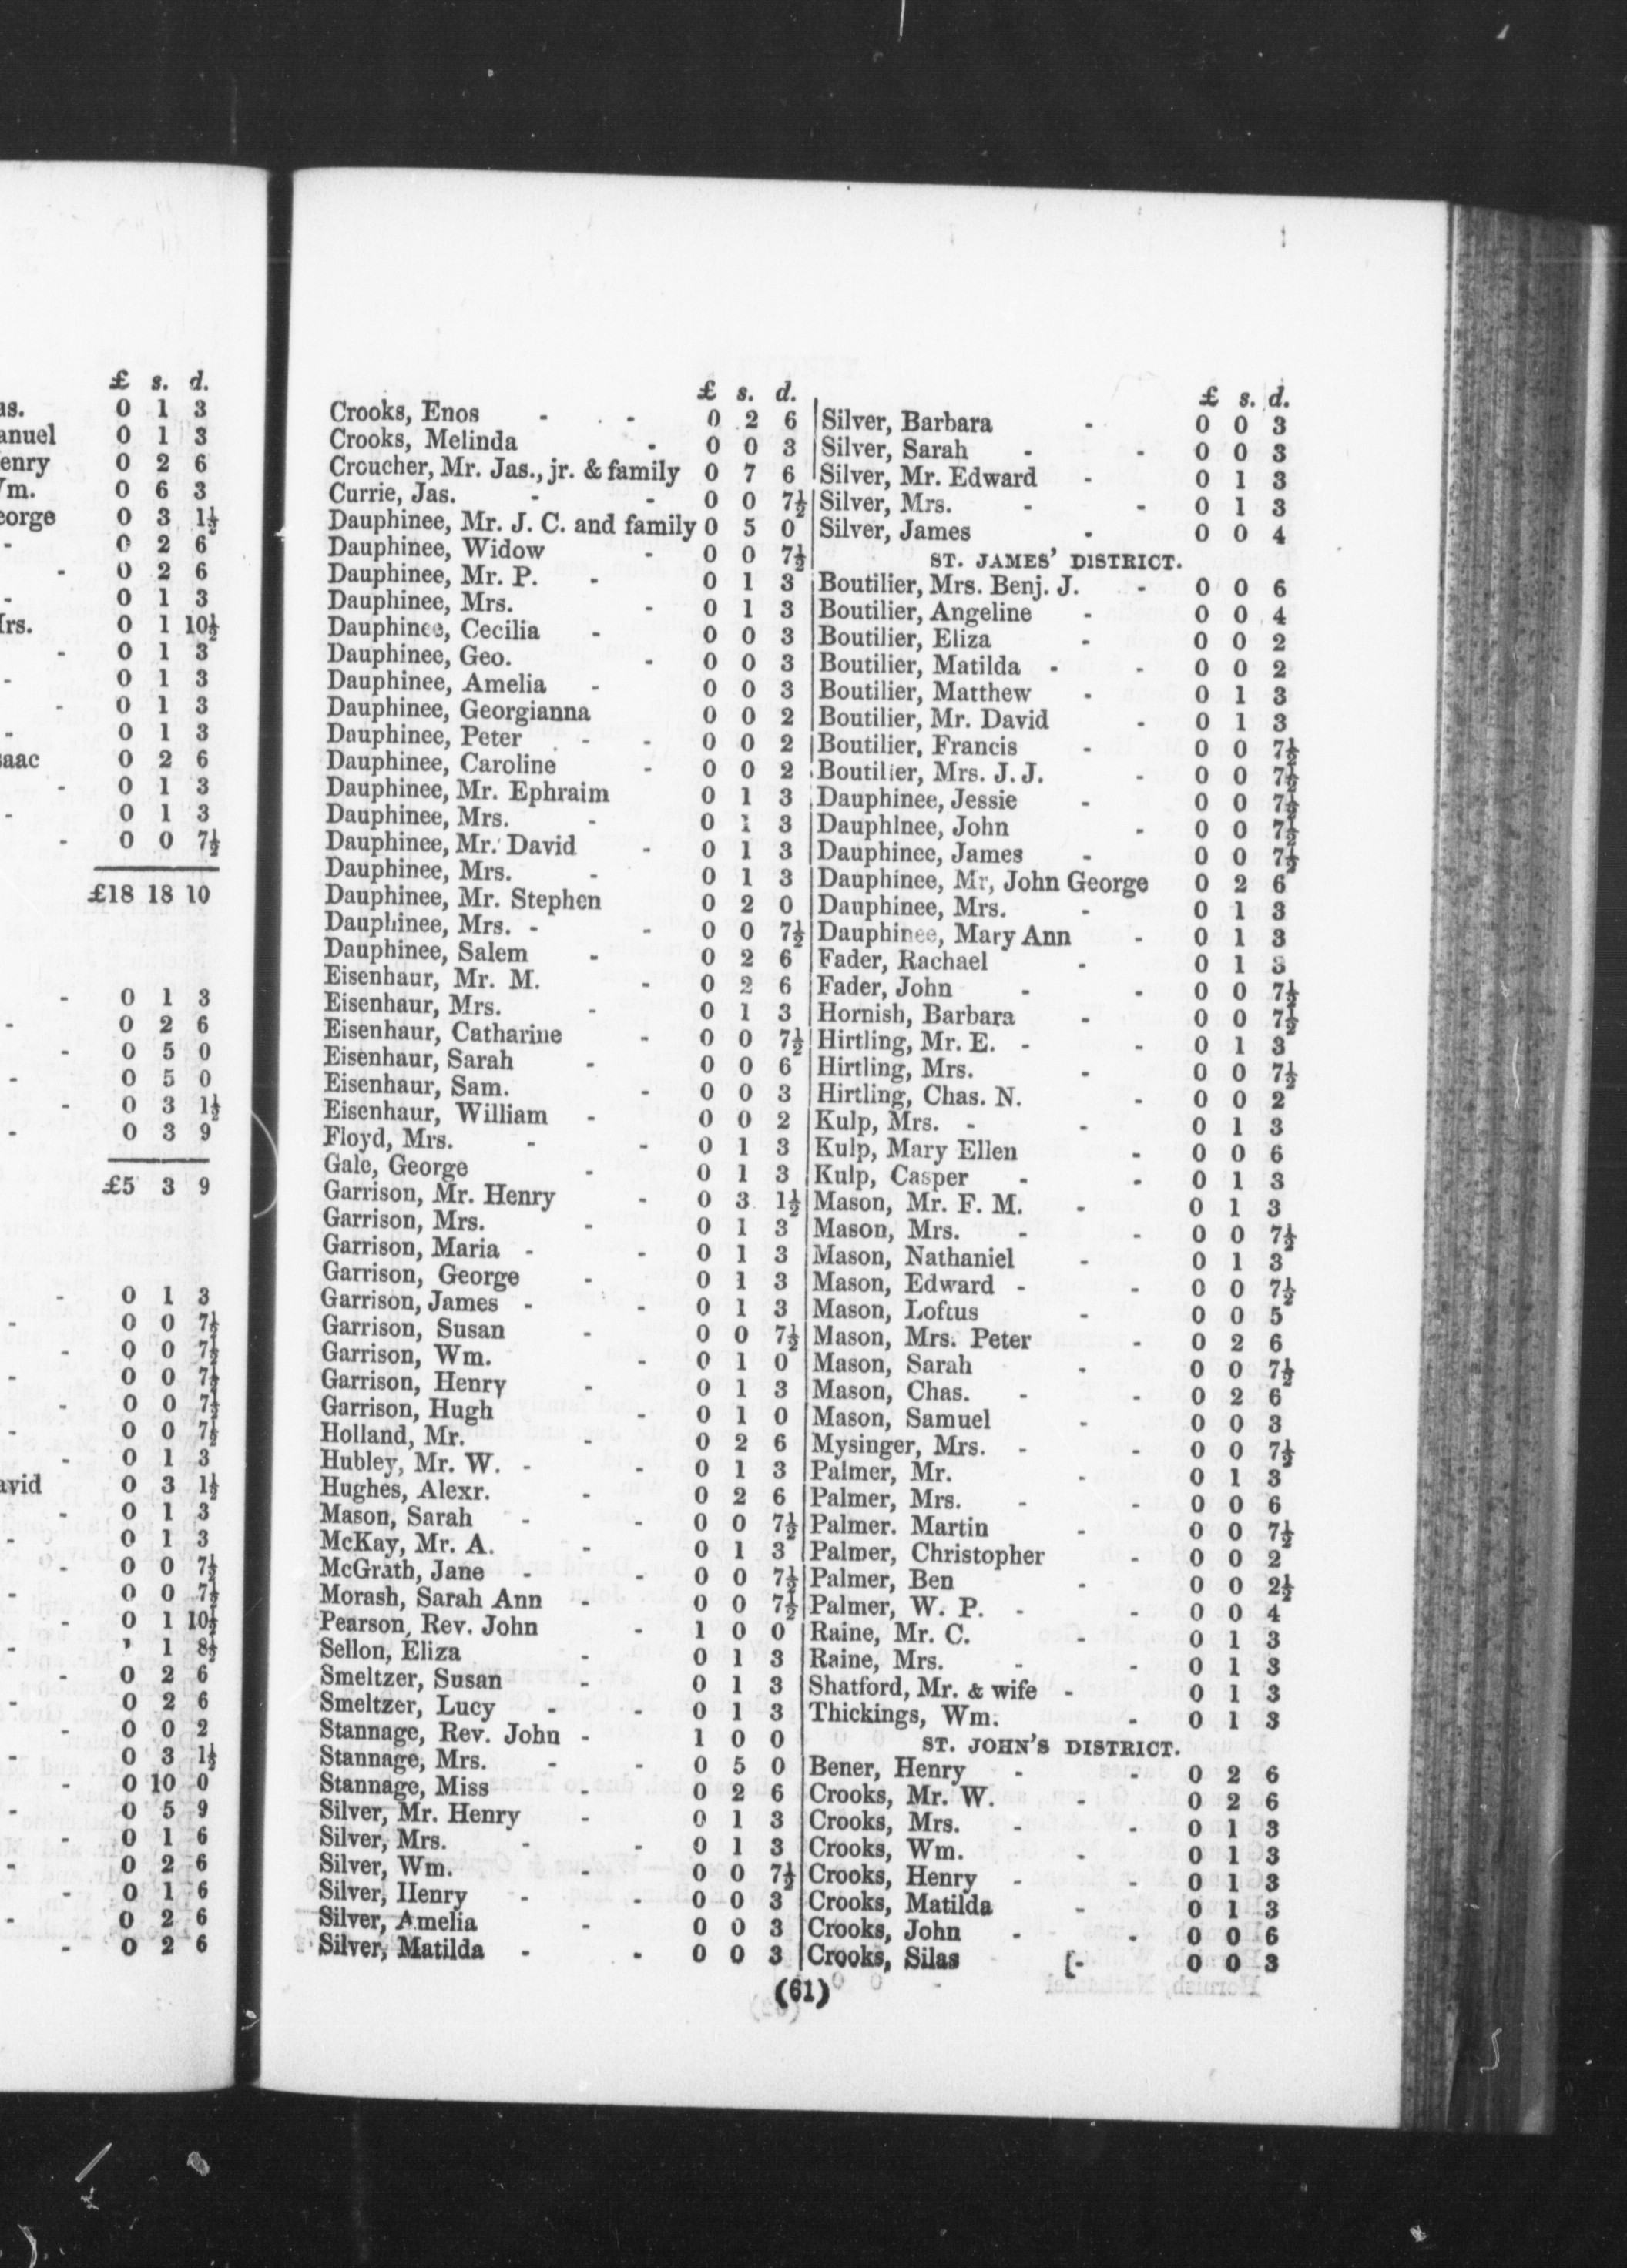 £ s. d.
as. 0 1 3
anuel 0 1 3
enry 0 2 6
m. 0 6 3
eorge 0 3 1½
- 0 2 6
- 0 2 6
- 0 1 3
Irs. 0 1 10½
- 0 1 3
- 0 1 3
- 0 1 3
- 0 1 3
saac 0 2 6
- 0 1 3
- 0 1 3
- 0 0 7½
£18 18 10
- 0 1 3
- 0 2 6
- 0 5 0
- 0 5 0
- 0 3 1½
- 0 3 9
£5 3 9
- 0 1 3
- 0 0 7½
- 0 0 7½
- 0 0 7½
- 0 0 7½
- 0 0 7½
- 0 1 3
avid 0 3 1½
- 0 1 3
- 0 1 3
- 0 0 7½
- 0 0 7½
- 0 1 10½
- 1 8½
- 0 2 6
- 0 2 6
- 0 0 2
- 0 3 1½
- 0 10 0
- 0 5 9
- 0 1 6
- 0 2 6
- 0 1 6
- 0 2 6
- 0 2 6
£ s. d.
Crooks, Enos - - 0 2 6
Crooks, Melinda - 0 0 3
Croucher, Mr. Jas., jr. & family 0 7 6
Currie, Jas. - - 0 0 7½
Dauphinee, Mr. J. C. and family 0 5 0
Dauphinee, Widow - 0 0 7½
Dauphinee, Mr. P. - 0 1 3
Dauphinee, Mrs. - 0 1 3
Dauphinee, Cecilia - 0 0 3
Dauphinee, Geo. - 0 0 3
Dauphinee, Amelia - 0 0 3
Dauphinee, Georgianna 0 0 2
Dauphinee, Peter - - 0 0 2
Dauphinee, Caroline - 0 0 2
Dauphinee, Mr. Ephraim 0 1 3
Dauphinee, Mrs. - 0 1 3
Dauphinee, Mr. David - 0 1 3
Dauphinee, Mrs. - 0 1 3
Dauphinee, Mr. Stephen 0 2 0
Dauphinee, Mrs. - - 0 0 7½
Dauphinee, Salem - 0 2 6
Eisenhaur, Mr. M. - 0 2 6
Eisenhaur, Mrs. - 0 1 3
Eisenhaur, Catharine - 0 0 7½
Eisenhaur, Sarah - 0 0 6
Eisenhaur, Sam. - 0 0 3
Eisenhaur, William - 0 0 2
Floyd, Mrs. - - 0 1 3
Gale, George - 0 1 3
Garrison, Mr. Henry - 0 3 1½
Garrison, Mrs. - 0 1 3
Garrison, Maria - - 0 1 3
Garrison, George - 0 1 3
Garrison, James - - 0 1 3
Garrison, Susan - 0 0 7½
Garrison, Wm. - 0 1 0
Garrison, Henry - 0 1 3
Garrison, Hugh - 0 1 0
Holland, Mr. - 0 2 6
Hubley, Mr. W. - - 0 1 3
Hughes, Alexr. - 0 2 6
Mason, Sarah - - 0 0 7½
McKay, Mr. A. - 0 1 3
McGrath, Jane - - 0 0 7½
Morash, Sarah Ann - 0 0 7½
Pearson, Rev. John - 1 0 0
Sellon, Eliza - 0 1 3
Smeltzer, Susan - 0 1 3
Smeltzer, Lucy - - 0 1 3
Stannage, Rev. John - 1 0 0
Stannage, Mrs. - - 0 5 0
Stannage, Miss - 0 2 6
Silver, Mr. Henry - 0 1 3
Silver, Mrs. - - 0 1 3
Silver, Wm. - 0 0 7½
Silver, Henry - - 0 0 3
Silver, Amelia - 0 0 3
Silver, Matilda - - 0 0 3
£ s. d.
Silver, Barbara - 0 0 3
Silver, Sarah - - 0 0 3
Silver, Mr. Edward - 0 1 3
Silver, Mrs. - - 0 1 3
Silver, James - 0 0 4
ST. JAMES' DISTRICT.
Boutilier, Mrs. Benj. J. - 0 0 6
Boutilier, Angeline - 0 0 4
Boutilier, Eliza - 0 0 2
Boutilier, Matilda - - 0 0 2
Boutilier, Matthew - 0 1 3
Boutilier, Mr. David - 0 1 3
Boutilier, Francis - 0 0 7½
Boutilier, Mrs. J. J. - 0 0 7½
Dauphinee, Jessie - 0 0 7½
Dauphlnee, John - 0 0 7½
Dauphinee, James - 0 0 7½
Dauphinee, Mr, John George 0 2 6
Dauphinee, Mrs. - 0 1 3
Dauphinee, Mary Ann - 0 1 3
Fader, Rachael - 0 1 3
Fader, John - - 0 0 7½
Hornish, Barbara - 0 0 7½
Hirtling, Mr. E. - - 0 1 3
Hirtling, Mrs. - 0 0 7½
Hirtling, Chas. N. - 0 0 2
Kulp, Mrs. - - 0 1 3
Kulp, Mary Ellen - 0 0 6
Kulp, Casper - - 0 1 3
Mason, Mr. F. M. - 0 1 3
Mason, Mrs. - - 0 0 7½
Mason, Nathaniel - 0 1 3
Mason, Edward - - 0 0 7½
Mason, Loftus - 0 0 5
Mason, Mrs. Peter - 0 2 6
Mason, Sarah - 0 0 7½
Mason, Chas. - - 0 2 6
Mason, Samuel - 0 0 3
Mysinger, Mrs. - - 0 0 7½
Palmer, Mr. - 0 1 3
Palmer, Mrs. - - 0 0 6
Palmer. Martin - 0 0 7½
Palmer, Christopher - 0 0 2
Palmer, Ben - 0 0 2½
Palmer, W. P. - - 0 0 4
Raine, Mr. C. - 0 1 3
Raine, Mrs. - - 0 1 3
Shatford, Mr. & wife - 0 1 3
Thickings, Wm. - 0 1 3
ST. JOHN'S DISTRICT.
Bener, Henry - - 0 2 6
Crooks, Mr. W. - 0 2 6
Crooks, Mrs. - - 0 1 3
Crooks, Wm. - 0 1 3
Crooks, Henry - - 0 1 3
Crooks, Matilda - 0 1 3
Crooks, John - - 0 0 6
Crooks, Silas [- 0 0 3
(61)